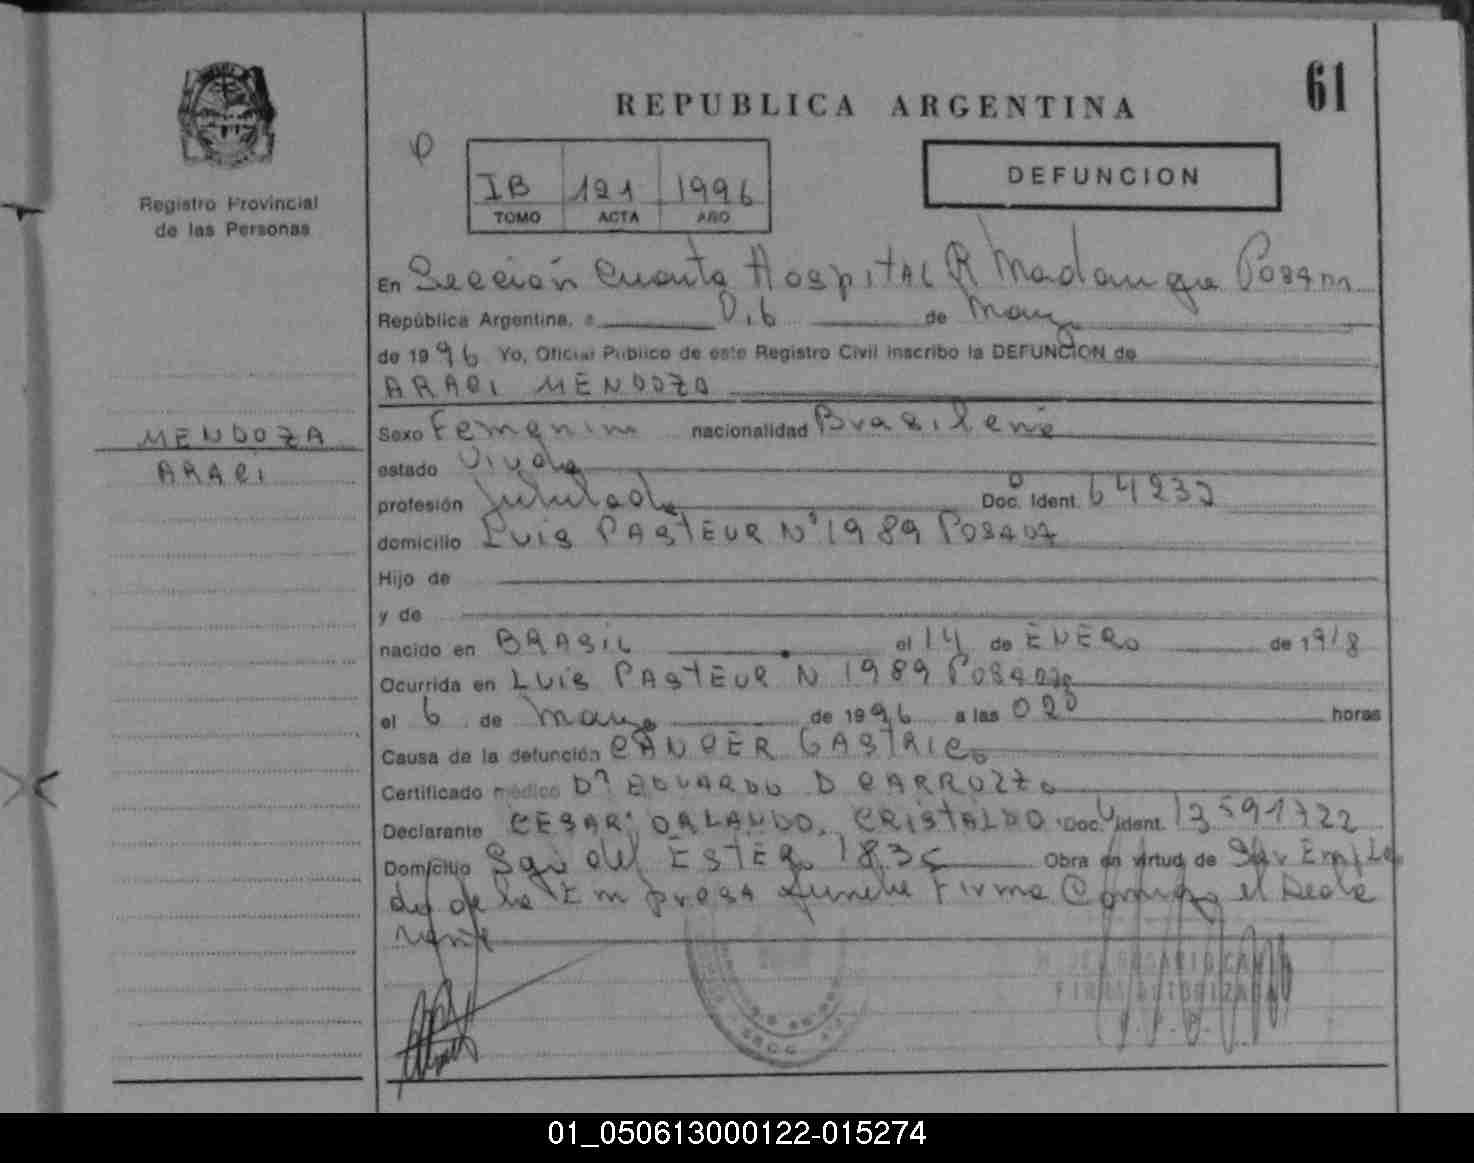 61
REPUBLICA ARGENTINA
DEFUNCION
IB 121 1996
TOMO ACTA AÑO
Registro Provincial
de las Personas
En Sección Cuarta Hospital R Madariaga Posadas
República Argentina, a 0.6 de Marzo
de 1996 Yo, Oficial Público de este Registro Civil inscribo la DEFUNCION de
ARACI MENDOZA
MENDOZA
ARACI
Sexo Femenino nacionalidad Brasileña
estado Viuda
profesión Jubilada Doc. Ident.
domicilio Luis PASTEUR Nº 1989 Posadas
Hijo de
y de
nacido en BRASIL el 14 de ENERO de 1918
Ocurrida en Luis PASTEUR N 1989 Posadas
el 6 de Marzo de 1996 a las 020 horas
Causa de la defunción CÁNCER GASTRICO
Certificado médico Dr EDUARDO D CARROZZO
Declarante CESAR ORLANDO CRISTALDO Doc. Ident. 13591722
Domicilio Sgo del ESTERO 1835 Obra en virtud de Ser Emplea
do de la Empresa funebre Firma Conmigo el Decla
rante
FIRMA AUTORIZADA
01_050613000122-015274